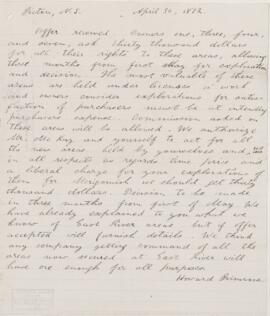 Pictou, N.S. April 30, 1882.
Offer received Owners one, three, four,
and seven, ask thirty thousand dollars
for all their rights to these areas, allowing
three months from first May for exploration
and decision. The most valuable of these
areas are held under licenses to work
and owners consider explorations for satis
faction of purchasers must be at intending
purchasers expense. Commission asked on
these areas will be allowed. We authorize
and yourself to act for all
the new areas held by yourselves and
in all respects as regards time
a liberal charge for your explorations of
them for we should get thirty
thousand dollars. Decision to be made
in three months from first of May. We
have already explained to you what we
know of East River areas but if offer
accepted will furnish details. We think
any company getting command of all the
areas now secured at East River will
have ore enough for all purposes
Howard Primrose